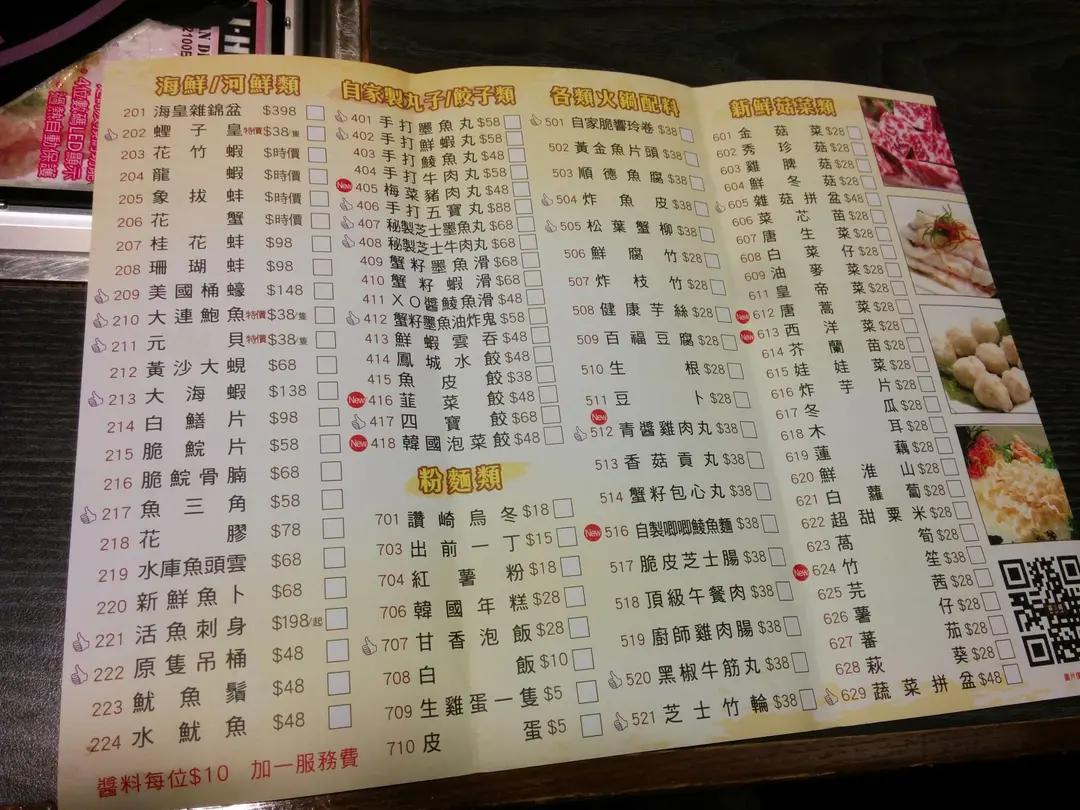 海鮮/河鮮類
201 海皇雜錦盆 $398
202 蟶子皇 特價$38/隻
203 花竹蝦 $時價
204 龍蝦 $時價
205 象拔蚌 $時價
206 花蟹 $時價
207 桂花蚌 $98
208 珊瑚蚌 $98
209 美國桶蠔 $148
210 大連鮑魚 特價$38/隻
211 元貝 特價$38/隻
212 黃沙大蜆 $68
213 大海蝦 $138
214 白鱔片 $98
215 脆鯇片 $58
216 脆鯇骨腩 $68
217 魚三角 $58
218 花膠 $78
219 水庫魚頭雲 $68
220 新鮮魚卜 $68
221 活魚刺身 $198/起
222 原隻吊桶 $48
223 魷魚鬚 $48
224 水魷魚 $48
醬料每位$10 加一服務費
自家製丸子/餃子類
401 手打墨魚丸 $58
402 手打鮮蝦丸 $58
403 手打鯪魚丸 $48
404 手打牛肉丸 $58
New 405 梅菜豬肉丸 $48
406 手打五寶丸 $88
407 秘製芝士墨魚丸 $68
408 秘製芝士牛肉丸 $68
409 蟹籽墨魚滑 $68
410 蟹籽蝦滑 $68
411 XO醬鯪魚滑 $48
412 蟹籽墨魚油炸鬼 $58
413 鮮蝦雲吞 $48
414 鳳城水餃 $48
415 魚皮餃 $38
New 416 韮菜餃 $48
417 四寶餃 $68
New 418 韓國泡菜餃 $48
粉麵類
701 讚崎烏冬 $18
703 出前一丁 $15
704 紅薯粉 $18
706 韓國年糕 $28
707 甘香泡飯 $28
708 白飯 $10
709 生雞蛋一隻 $5
710 皮蛋 $5
各類火鍋配料
501 自家脆響玲卷 $38
502 黃金魚片頭 $38
503 順德魚腐 $38
504 炸魚皮 $38
505 松葉蟹柳 $38
506 鮮腐竹 $28
507 炸枝竹 $28
508 健康芋絲 $28
509 百福豆腐 $28
510 生根 $28
511 豆卜 $28
New 512 青醬雞肉丸 $38
513 香菇貢丸 $38
514 蟹籽包心丸 $38
New 516 自製唧唧鯪魚麵 $38
517 脆皮芝士腸 $38
518 頂級午餐肉 $38
519 廚師雞肉腸 $38
520 黑椒牛筋丸 $38
521 芝士竹輪 $38
新鮮菇菜類
601 金菇菜 $28
602 秀珍菇 $28
603 雞脾菇 $28
604 鮮冬菇 $28
605 雜菇拼盆 $48
606 菜芯苗 $28
607 唐生菜 $28
608 白菜仔 $28
609 油麥菜 $28
611 皇帝菜 $28
New 612 唐蒿菜 $28
New 613 西洋菜 $28
614 芥蘭苗 $28
615 娃娃菜 $28
616 炸芋片 $28
617 冬瓜 $28
618 木耳 $28
619 蓮藕 $28
620 鮮淮山 $28
621 白蘿蔔 $28
622 超甜粟米 $28
623 萵筍 $28
New 624 竹笙 $38
625 芫茜 $28
626 薯仔 $28
627 蕃茄 $28
628 萩葵 $28
629 蔬菜拼盆 $48
4位動碼LED顯示
過熱自動保護